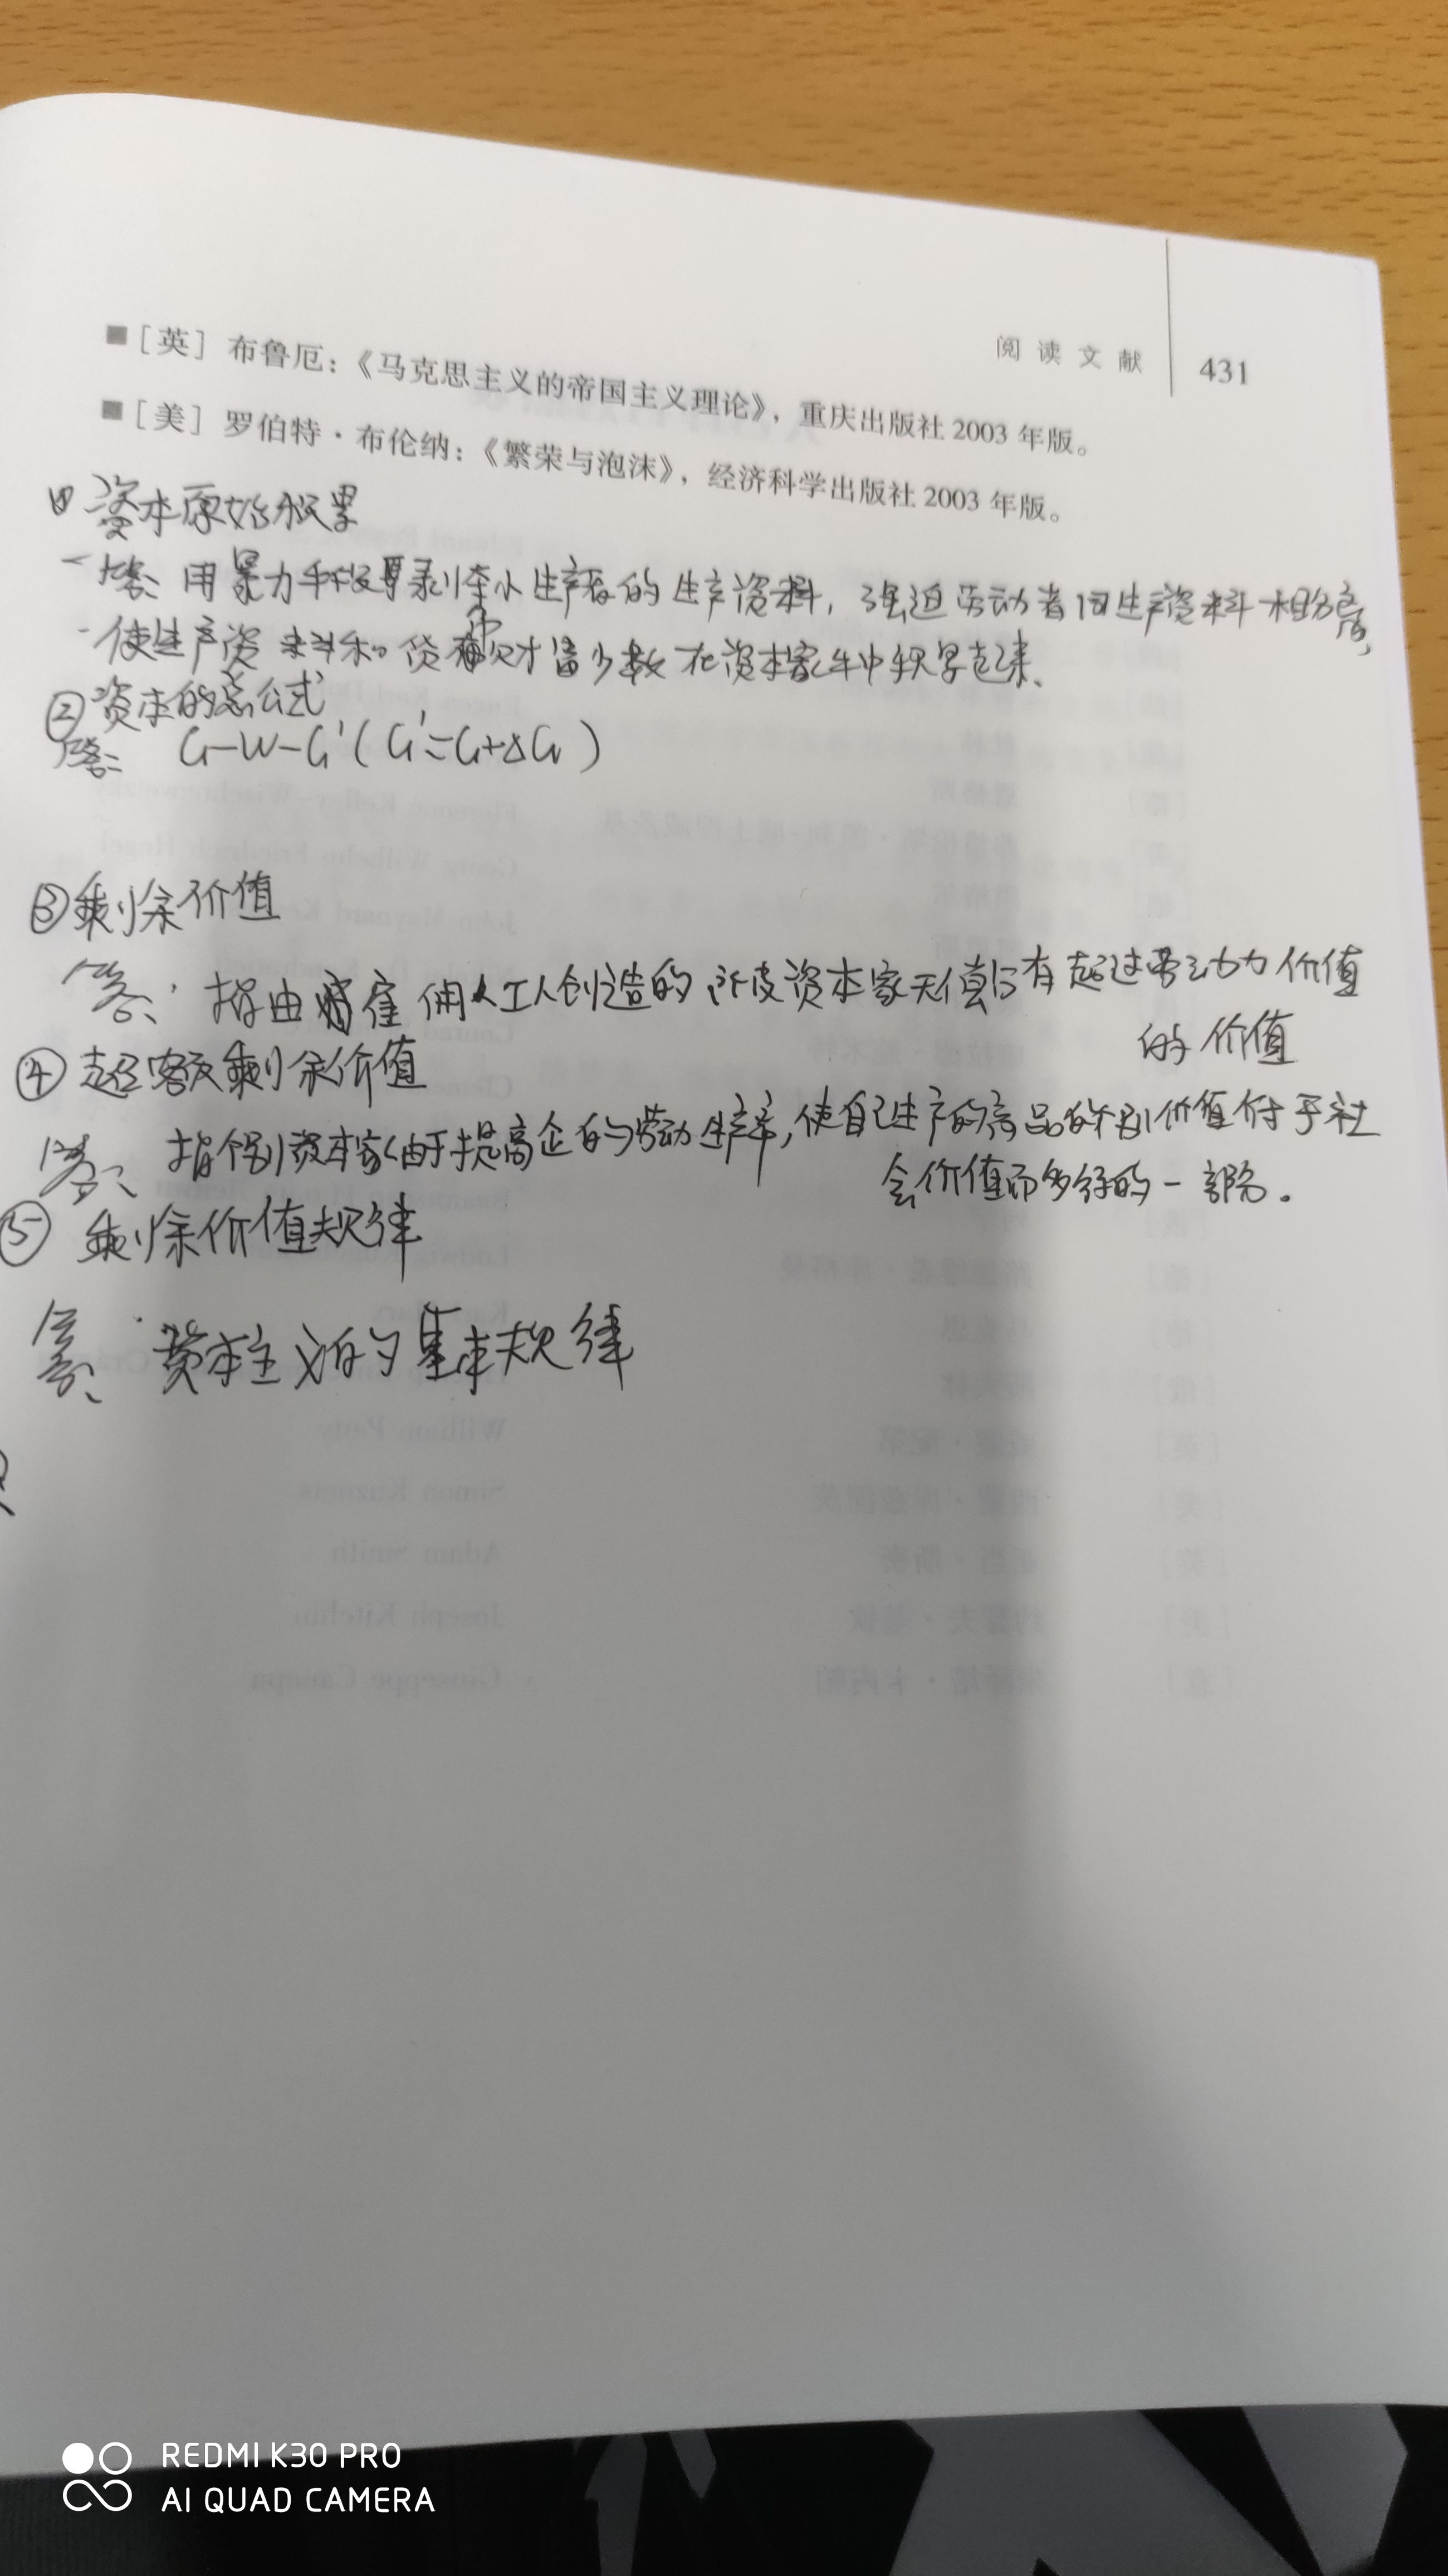 阅读文献 431
■［英］布鲁厄：《马克思主义的帝国主义理论》，重庆出版社 2003 年版。
■［美］罗伯特·布伦纳：《繁荣与泡沫》，经济科学出版社 2003 年版。
① 资本原始积累
答：用暴力手段剥夺小生产者的生产资料，强迫劳动者同生产资料相分离，
使生产资料和货币财富少数在资本家手中积累起来、
② 资本的总公式
答： G－W－G′（G′＝G+ΔG）
③ 剩余价值
答：指由雇佣工人创造的所被资本家无偿占有超过劳动力价值
的价值
④ 超额剩余价值
答：指个别资本家由于提高企的劳动生产率，使自己生产的商品的个别价值低于社
会价值而多得的一部分。
⑤ 剩余价值规律
答：资本主义的基本规律
REDMI K30 PRO
AI QUAD CAMERA